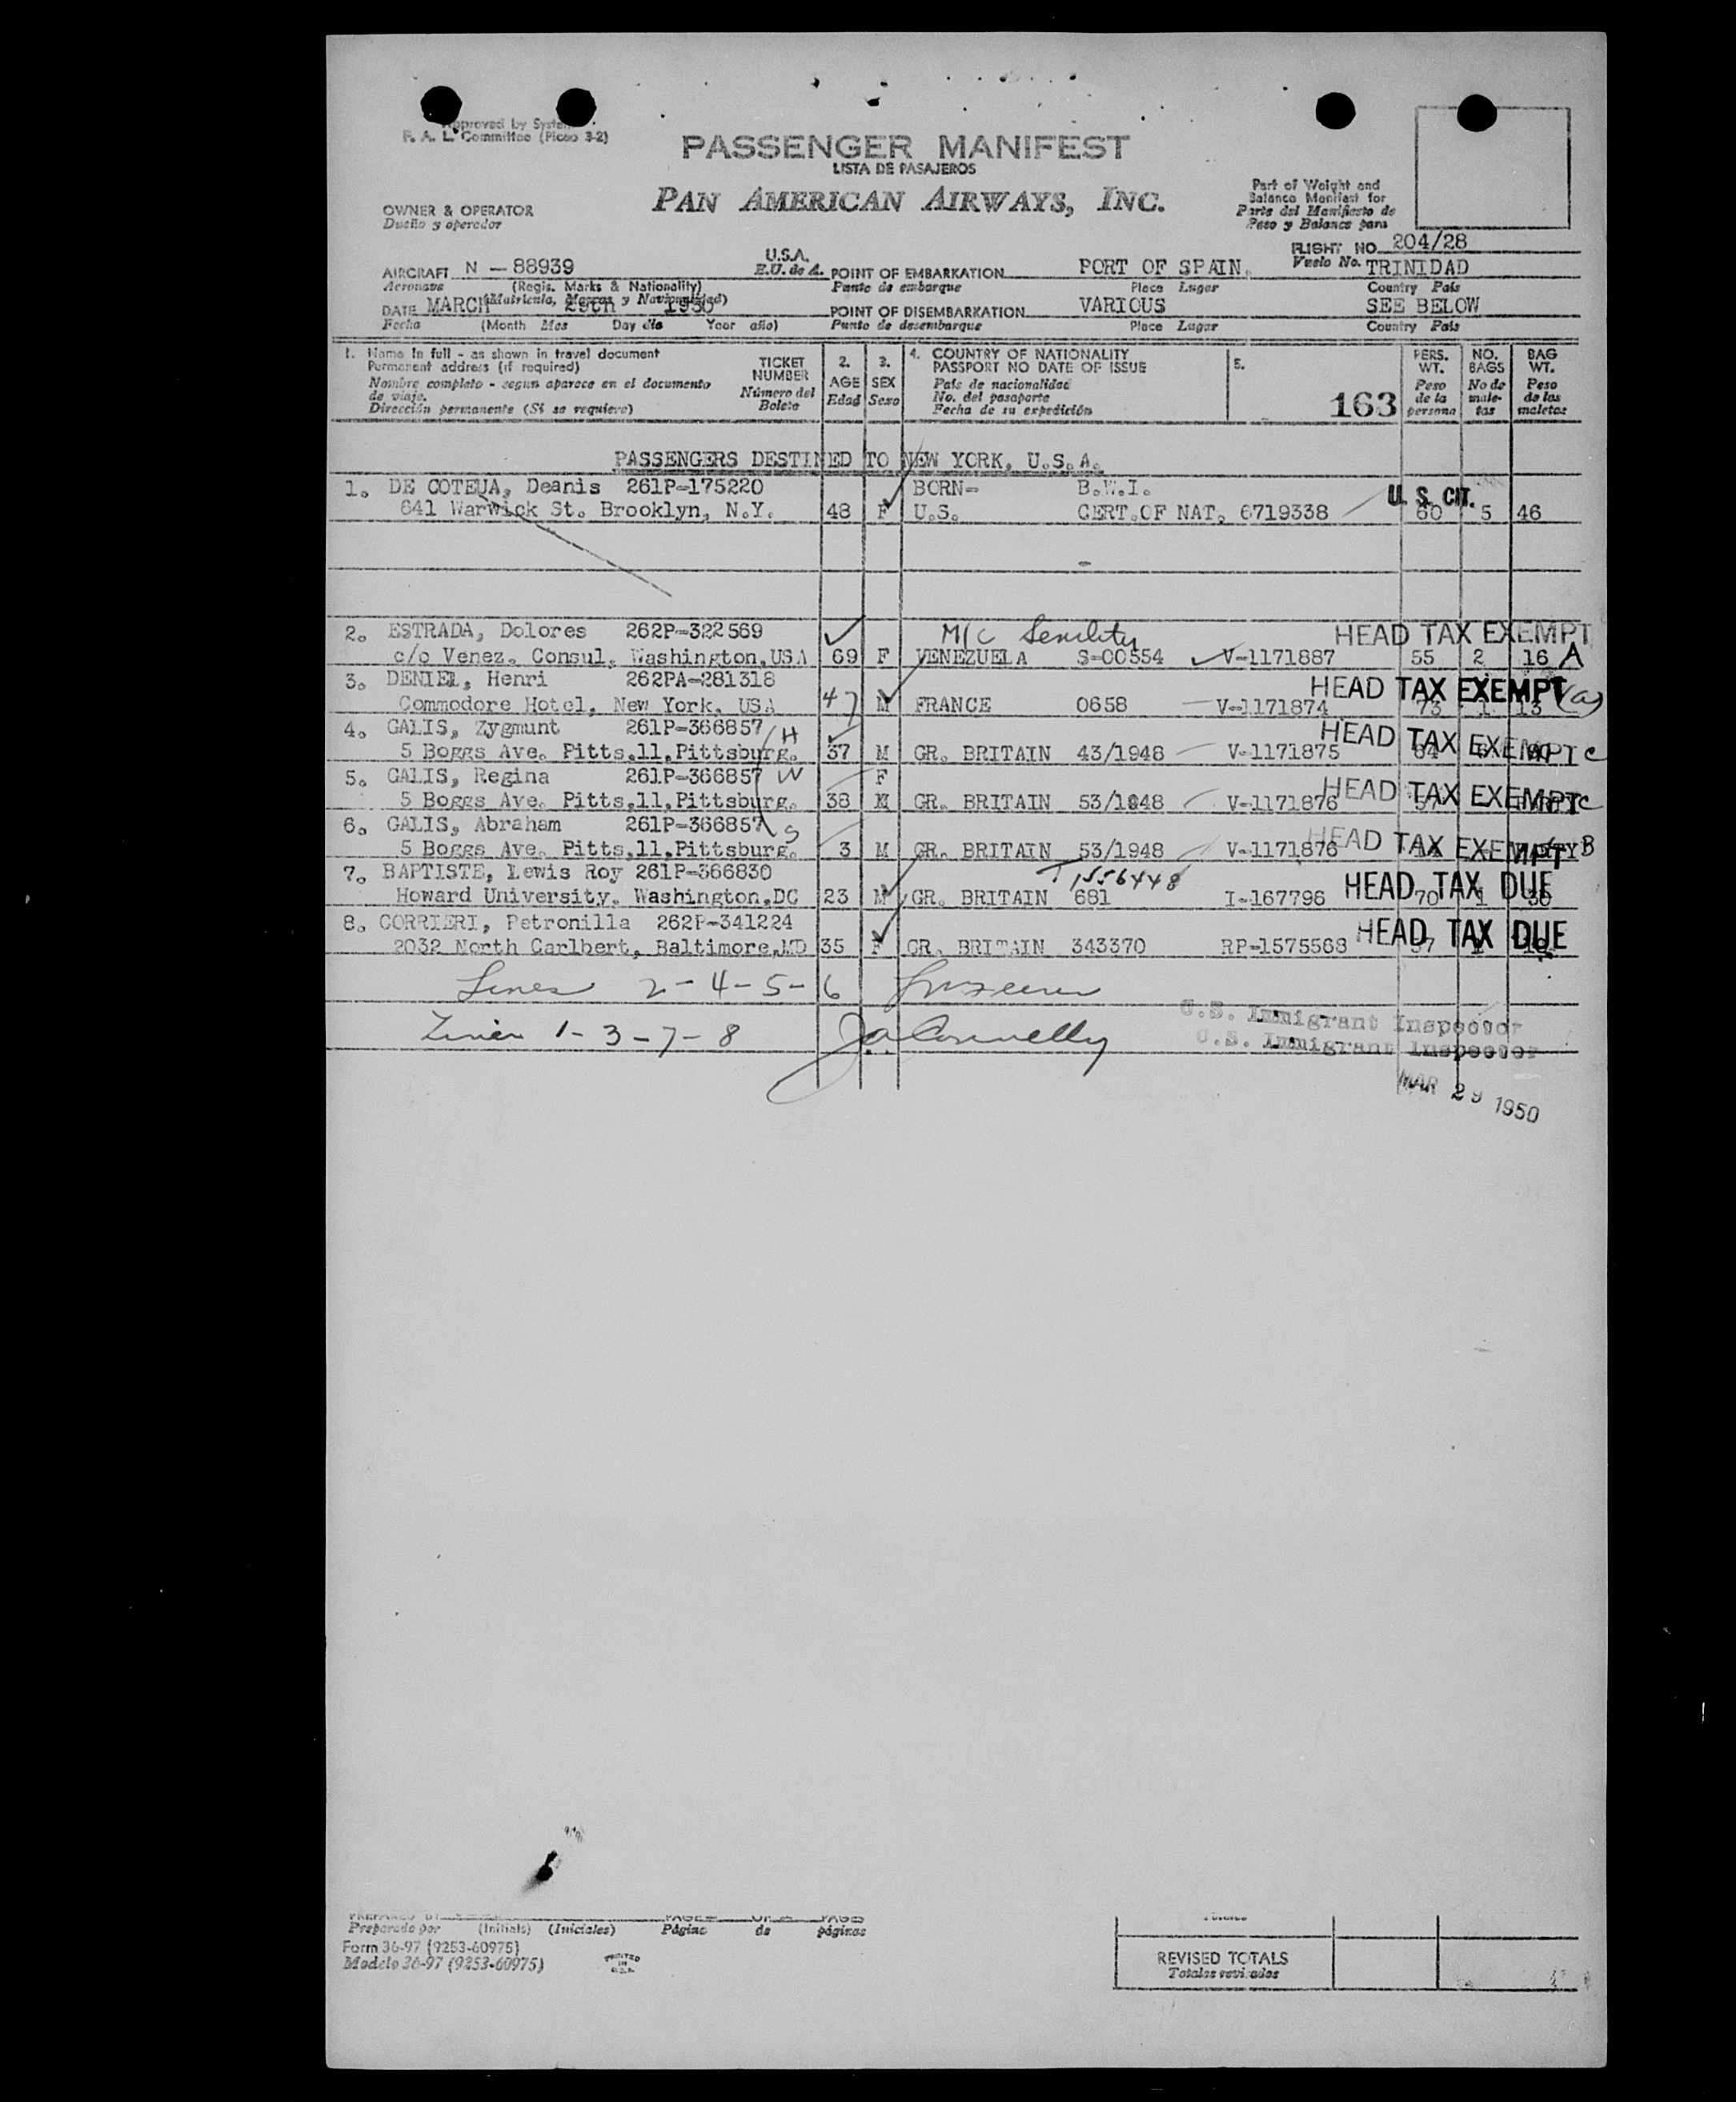 Approved by System
F. A. L. Committee (Picao 3-2)
PASSENGER MANIFEST
LISTA DE PASAJEROS
PAN AMERICAN AIRWAYS, INC.
OWNER & OPERATOR
Dueño y operador
Part of Weight and
Balance Manifest for
Parte del Manifiesto de
Peso y Balance para
FLIGHT NO. 204/28
Vuelo No.
AIRCRAFT N - 88939 U.S.A. POINT OF EMBARKATION PORT OF SPAIN, TRINIDAD
Aeronave (Regis. Marks & Nationality) E.U. de A. Punto de embarque Place Lugar Country País
(Matrícula, Marcas y Nacionalidad)
DATE MARCH 29th 1950 POINT OF DISEMBARKATION VARIOUS SEE BELOW
Fecha (Month Mes Day día Year año) Punto de desembarque Place Lugar Country País
1. Name in full - as shown in travel document
Permanent address (if required)
Nombre completo - según aparece en el documento
de viaje.
Dirección permanente (Si se requiere)
TICKET
NUMBER
Número del
Boleto
2.
AGE
Edad
3.
SEX
Sexo
4. COUNTRY OF NATIONALITY
PASSPORT NO DATE OF ISSUE
País de nacionalidad
No. del pasaporte
Fecha de su expedición
5.
163
PERS.
WT.
Peso
de la
persona
NO.
BAGS
No de
male-
tas
BAG
WT.
Peso
de las
maletas
PASSENGERS DESTINED TO NEW YORK, U.S.A.
1. DE COTEUA, Deanis 261P-175220 BORN- B.W.I. U. S. CIT.
641 Warwick St. Brooklyn, N.Y. 48 F U.S. CERT.OF NAT. 6719338 60 5 46
2. ESTRADA, Dolores 262P-322569 M/C Senility HEAD TAX EXEMPT
c/o Venez. Consul, Washington,USA 69 F VENEZUELA S-00554 V-1171887 55 2 16 A
3. DENIEL, Henri 262PA-281318 HEAD TAX EXEMPT (a)
Commodore Hotel, New York, USA 47 M FRANCE 0658 V-1171874 73 1 13
4. GALIS, Zygmunt 261P-366857 H HEAD TAX EXEMPT C
5 Boggs Ave. Pitts,11,Pittsburg. 37 M GR. BRITAIN 43/1948 V-1171875 84
5. GALIS, Regina 261P-366857 W F HEAD TAX EXEMPT C
5 Boggs Ave. Pitts,11,Pittsburg. 38 M GR. BRITAIN 53/1948 V-1171876
6. GALIS, Abraham 261P-366857 S HEAD TAX EXEMPT B
5 Boggs Ave. Pitts,11,Pittsburg. 3 M GR. BRITAIN 53/1948 V-1171876
7. BAPTISTE, Lewis Roy 261P-366830 T1556448 HEAD TAX DUE
Howard University, Washington,DC 23 M GR. BRITAIN 681 I-167796 70 1 30
8. CORRIERI, Petronilla 262P-341224 HEAD TAX DUE
2032 North Carlbert, Baltimore,MD 35 F GR. BRITAIN 343370 RP-1575568 57 1
Lines 2-4-5-6
U.S. Immigrant Inspector
Lines 1-3-7-8 JA Connelly
U.S. Immigrant Inspector
MAR 29 1950
PREPARED BY PAGE OF PAGES
Preparado por (Initials) (Iniciales) Página de páginas
Form 36-97 (9253-60975)
Modelo 36-97 (9253-60975)
PRINTED
IN
U.S.A.
Totales
REVISED TOTALS
Totales revisados